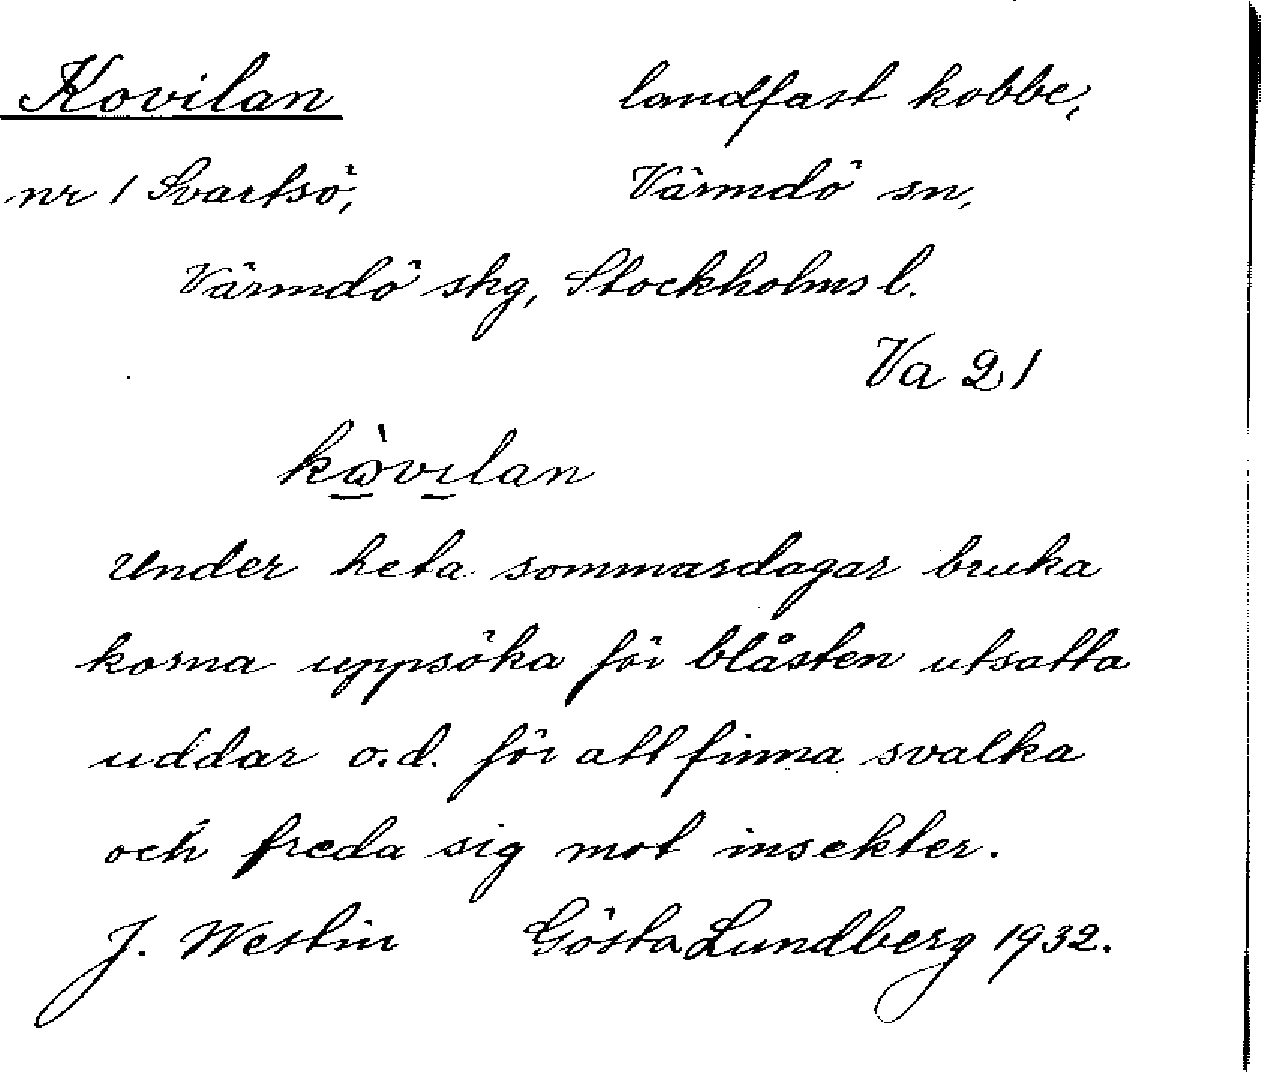 Kovilan landfast kobbe,
nr 1 Svartsö, Värmdö sn,
Värmdö skg, Stockholms l.
Va 21
kò̱vi̱lan
Under heta sommardagar bruka
korna uppsöka för blåsten utsatta
uddar o.d. för att finna svalka
och freda sig mot insekter.
J. Westin Gösta Lundberg 1932.